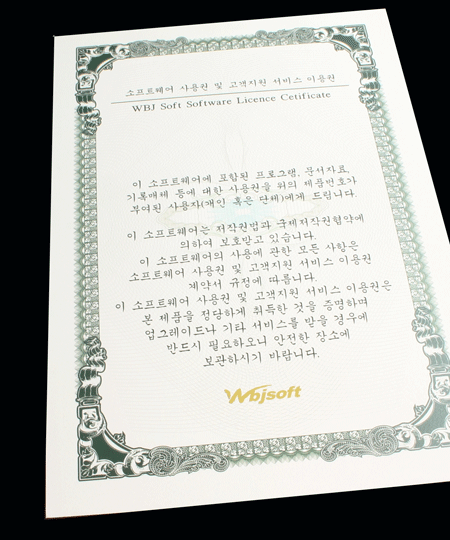 소프트웨어 사용권 및 고객지원 서비스 이용권
WBJ Soft Software Licence Cetificate
이 소프트웨어에 포함된 프로그램, 문서자료,
기록매체 등에 대한 사용권을 위의 제품번호가
부여된 사용자(개인 혹은 단체)에게 드립니다.
이 소프트웨어는 저작권법과 국제저작권협약에
의하여 보호받고 있습니다.
이 소프트웨어의 사용에 관한 모든 사항은
소프트웨어 사용권 및 고객지원 서비스 이용권
계약서 규정에 따릅니다.
이 소프트웨어 사용권 및 고객지원 서비스 이용권은
본 제품을 정당하게 취득한 것을 증명하며
업그레이드나 기타 서비스를 받을 경우에
반드시 필요하오니 안전한 장소에
보관하시기 바랍니다.
Wbjsoft